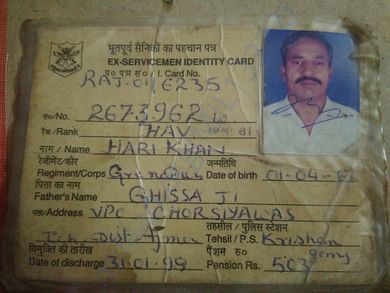 भूतपूर्व सैनिकों का पहचान पत्र
EX-SERVICEMEN IDENTITY CARD
प० पत्र सं० / I. Card No.
RAJ-01/6235
सं०/No. 2673962
रैंक/Rank HAV.
नाम / Name HARI KHAN
रेजीमेंट/कोर जन्मतिथि
Regiment/Corps Date of birth 01-04-
पिता का नाम
Father's Name GHISSA JI
पता/Address VPO CHORSIYAWAS
तहसील / पुलिस स्टेशन
Dist Ajmer Tehsil / P.S. Krishan
विमुक्ति की तारीख पेंशन रु०
Date of discharge 31-01-99 Pension Rs. 503